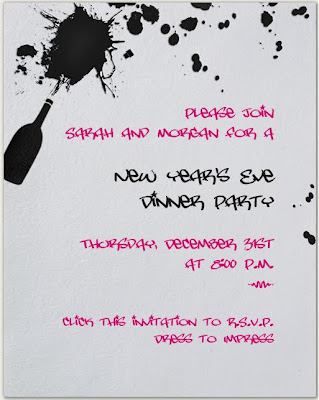 PLEASE JOIN
SARAH AND MORGAN FOR A
NEW YEAR'S EVE
DINNER PARTY
THURSDAY, DECEMBER 31ST
AT 8:00 P.M.
CLICK THIS INVITATION TO R.S.V.P.
DRESS TO IMPRESS